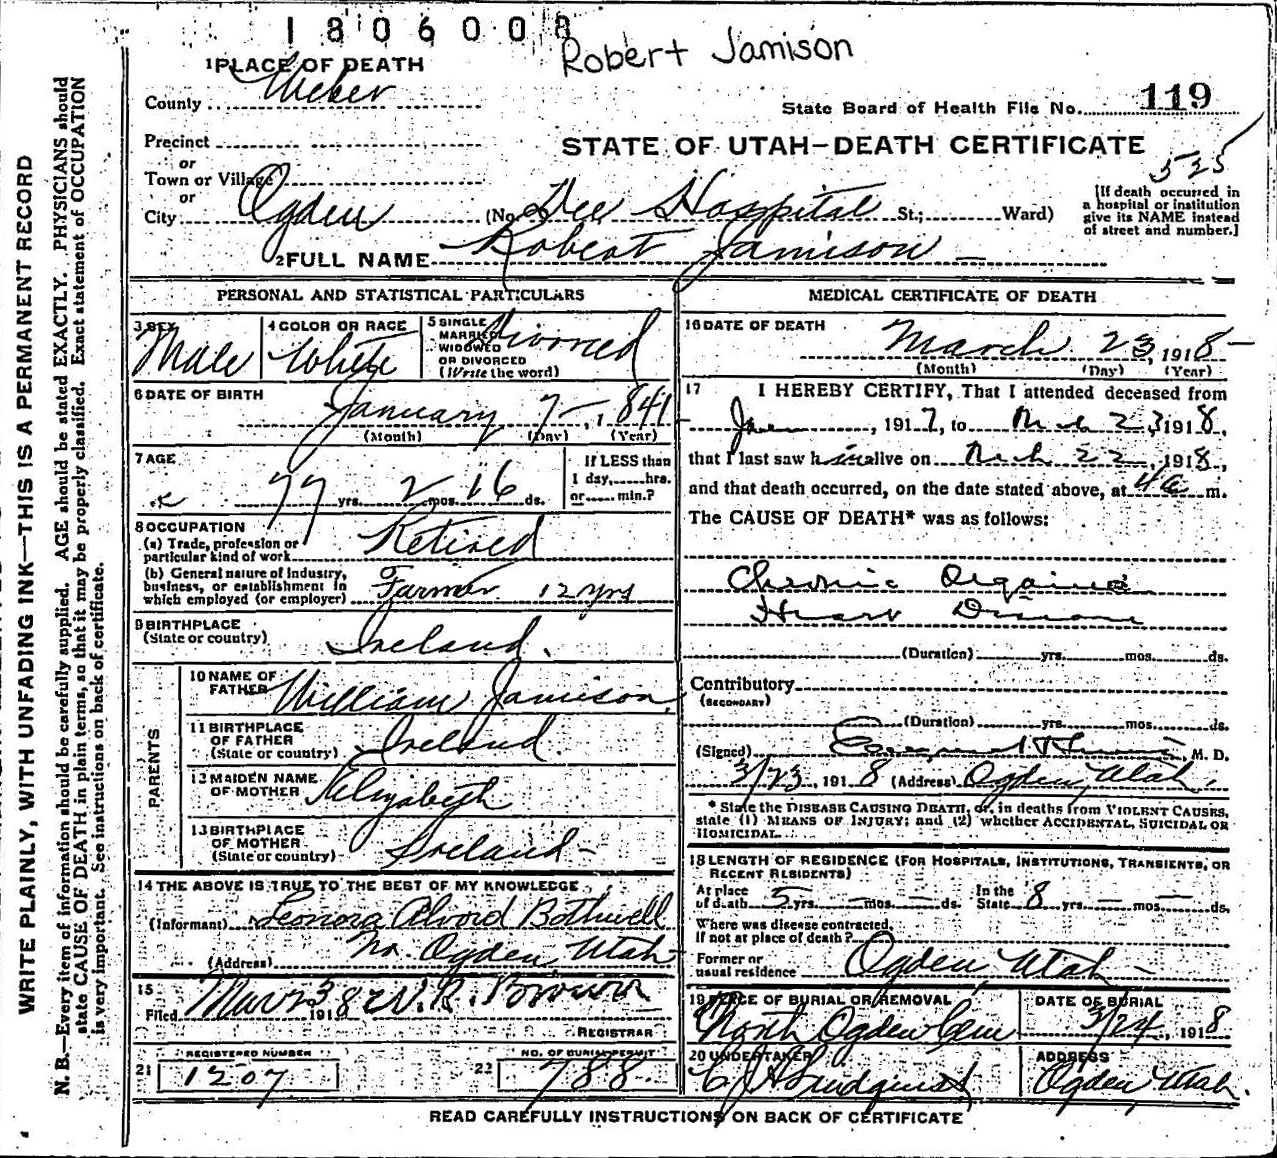 1806008
Robert Jamison
1 PLACE OF DEATH
County Weber
State Board of Health File No. 119
Precinct
or
Town or Village
or
City Ogden
STATE OF UTAH—DEATH CERTIFICATE
535
(No. Dee Hospital St.; Ward)
[If death occurred in
a hospital or institution
give its NAME instead
of street and number.]
2 FULL NAME Robert Jamison
WRITE PLAINLY, WITH UNFADING INK—THIS IS A PERMANENT RECORD
N. B.—Every item of information should be carefully supplied. AGE should be stated EXACTLY. PHYSICIANS should
state CAUSE OF DEATH in plain terms, so that it may be properly classified. Exact statement of OCCUPATION
is very important. See instructions on back of certificate.
PERSONAL AND STATISTICAL PARTICULARS
3 SEX
Male
4 COLOR OR RACE
White
5 SINGLE
MARRIED
WIDOWED
OR DIVORCED
(Write the word)
Divorced
6 DATE OF BIRTH
January 7, 1841
(Month) (Day) (Year)
7 AGE
77 yrs. 2 mos. 16 ds.
If LESS than
1 day, hrs.
or min.?
8 OCCUPATION
(a) Trade, profession or
particular kind of work Retired
(b) General nature of Industry,
business, or establishment in
which employed (or employer) Farmer 12 yrs
9 BIRTHPLACE
(State or country) Ireland.
PARENTS
10 NAME OF
FATHER William Jamison
11 BIRTHPLACE
OF FATHER
(State or country) Ireland
12 MAIDEN NAME
OF MOTHER Elizabeth
13 BIRTHPLACE
OF MOTHER
(State or country) Ireland
14 THE ABOVE IS TRUE TO THE BEST OF MY KNOWLEDGE
(Informant) Leonora Alvord Bothwell
(Address) No. Ogden Utah
15
Filed Mar 23 1918 W. R. Brown
REGISTRAR
REGISTERED NUMBER
21 1207
NO. OF BURIAL PERMIT
22 788
MEDICAL CERTIFICATE OF DEATH
16 DATE OF DEATH
March 23, 1918
(Month) (Day) (Year)
17 I HEREBY CERTIFY, That I attended deceased from
Jan, 1917, to Mch 23 1918,
that I last saw him alive on Mch 22, 1918,
and that death occurred, on the date stated above, at m.
The CAUSE OF DEATH* was as follows:
Chronic Organic
Heart Disease
(Duration) yrs. mos. ds.
Contributory
(SECONDARY)
(Duration) yrs. mos. ds.
(Signed) M. D.
3/23, 1918 (Address) Ogden, Utah.
* State the DISEASE CAUSING DEATH, or, in deaths from VIOLENT CAUSES,
state (1) MEANS OF INJURY; and (2) whether ACCIDENTAL, SUICIDAL OR
HOMICIDAL.
18 LENGTH OF RESIDENCE (FOR HOSPITALS, INSTITUTIONS, TRANSIENTS, OR
RECENT RESIDENTS)
At place
of death 5 yrs. — mos. — ds.
In the
State 8 yrs. — mos. — ds.
Where was disease contracted,
if not at place of death?
Former or
usual residence Ogden, Utah
19 PLACE OF BURIAL OR REMOVAL
North Ogden Cem
DATE OF BURIAL
3/24, 1918
20 UNDERTAKER
ADDRESS
Ogden Utah.
READ CAREFULLY INSTRUCTIONS ON BACK OF CERTIFICATE